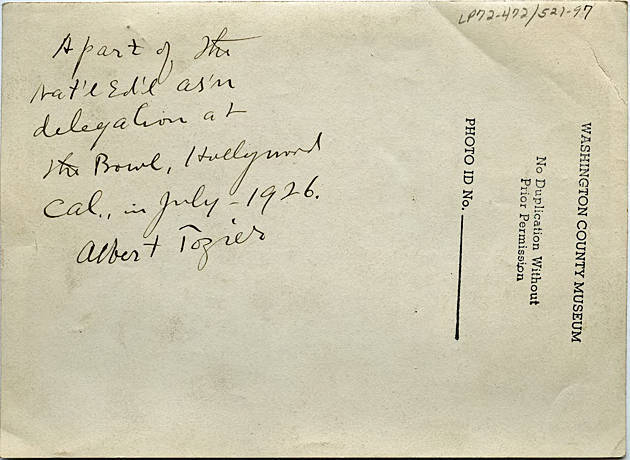 LP72-472/521-97
A part of the
Nat'l Ed'l as'n
delegation at
the Bowl, Hollywood
Cal., in July - 1926.
Albert Tozier
PHOTO ID No.
No Duplication Without
Prior Permission
WASHINGTON COUNTY MUSEUM